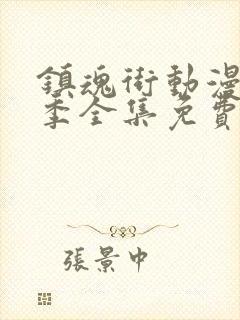 鎮魂街動漫
季全集免費
張景中